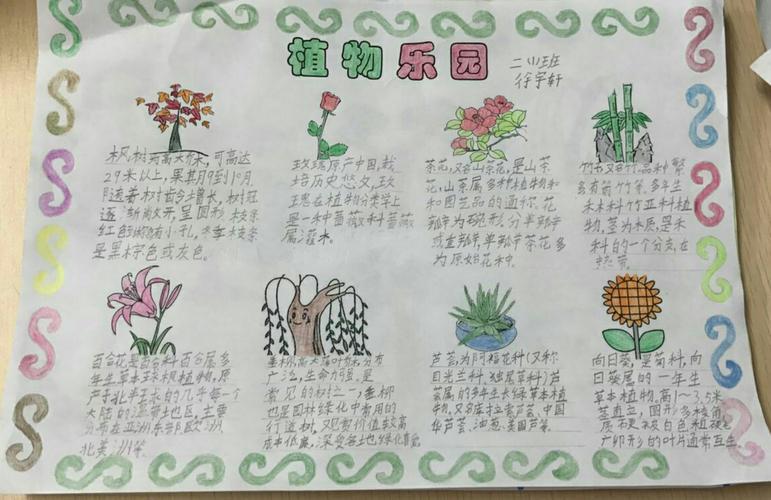 植物乐园
二小班
徐宇轩
枫树为高大乔木，可高达
29米以上，果其月9到10月
随着树龄增长，树冠
逐渐敞开，呈圆形枝条
红色 有小孔，冬季枝条
是黑棕色或灰色。
玫瑰原产中国，栽
培历史悠久，玫
瑰在植物分类学上
是一种蔷薇科蔷薇
属灌木。
茶花，又名山茶花，是山茶
花，山茶属多种植物和
和园艺品的通称，花
瓣为碗形，分单瓣
或重瓣，单瓣茶花多
为原始花种。
竹 又名竹 品种繁
多有箭竹等，多年生
禾本科竹亚科植
物，茎为木质，是禾
科的一个分支，在
热带
百合花是百合科百合属多
年生草本球根植物，原
产于北半球的几乎每一个
大陆的温带地区，主要
分布在亚洲东部欧洲
北美洲等
垂柳，高大落叶 分布
广泛，生命力强，是
常见的树之一，垂柳
也是园林绿化中常用的
行道树，观赏价值较高
成本低廉，深受各地绿化喜爱
芦荟，为阿福花科（又称
日光兰科、独尾草科）芦
荟属的多年生常绿草本植
物，又名库拉索芦荟、中国
华芦荟、油葱、美国芦荟
向日葵，是菊科，向
日葵属的一年生
草本植物，高1～3.5米
茎直立，圆形多棱角
质 被白色粗硬毛
广卵形的叶片通常互生